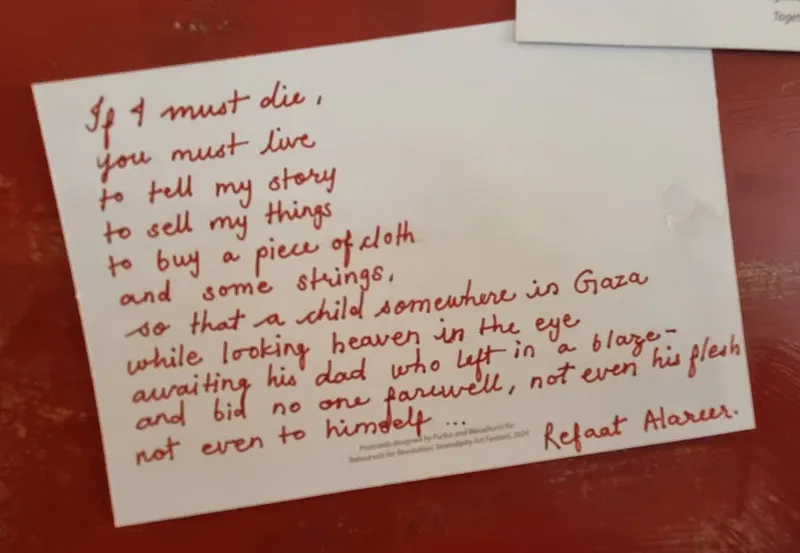 Toget
If I must die,
you must live
to tell my story
to sell my things
to buy a piece of cloth
and some strings,
so that a child somewhere in Gaza
while looking heaven in the eye
awaiting his dad who left in a blaze-
and bid no one farewell, not even his flesh
not even to himself ...
Refaat Alareer.
Postcards designed by Purba and Maushumi for
Rehearsals for Revolution, Serendipity Art Festival, 2024